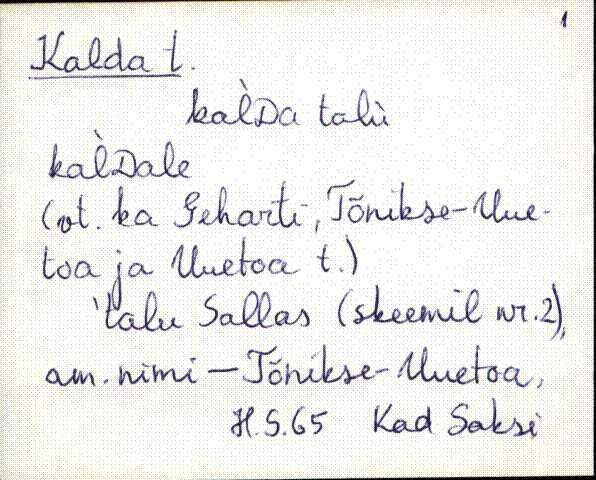 1
Kalda t.
kal̀Da talù
kal̀Dale
(vt. ka Geharti, Tõnikse-Uue-
toa ja Uuetoa t.)
'talu Sallas (skeemil nr.2),
am. nimi – Tõnikse-Uuetoa,
H.S.65 Kad Saksi